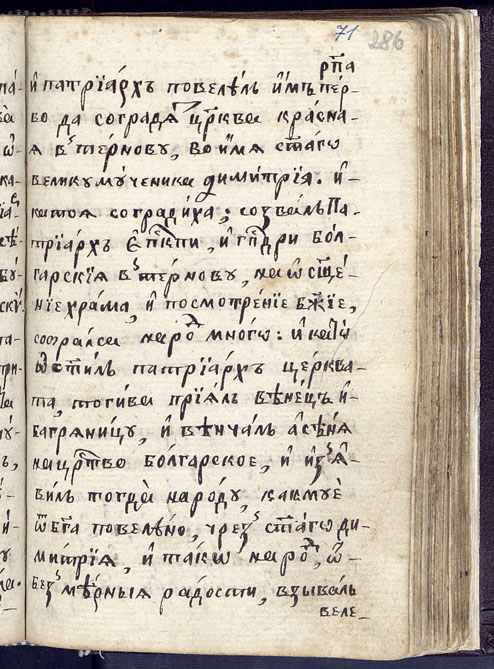 71 286
рп҃а
и҆ патрїа́рхъ повелѣлъ и҆мъ пе́р-
во да соградѧ̀ цр҃ква кра́сна-
ѧ в̾ те́рнову, во и҆́мѧ ст҃агѡ
великумꙋ́ченика дими́трїѧ. и҆-
катоѧ согради́ха; созва́лъ Па-
трїа́рхъ є҆пⷭ҇кпи, и҆ гпⷭ҇дри бо́л-
га́рскїѧ в̾ те́рнову, на ѡ҆сщ҃е́-
нїе хра́ма, и҆ посмотре́нїе бж҃їе,
собра́лсѧ наро́ⷣ мно́гѡ: и҆ катѡ̀
ѡ҆ст҃и́лъ патрїа́рхъ це́рква-
та, тогива прїѧ́лъ вѣне́цъ и҆-
багрѧни́цꙋ, и҆ вѣнча́лъ а҆сѣ́нѧ
на црⷭ҇тво бо́лгарское, и҆ и҆з̾ѧ-
ви́лъ тогда̀ наро́дꙋ, какмꙋѐ
ѿ бг҃а повелѣ́но, чрез̾ ст҃а́гѡ ди-
ми́трїѧ, и҆ та́кѡ наро́ⷣ, ѿ-
без̾мѣ́рныѧ ра́дости, взыва́лъ
веле-